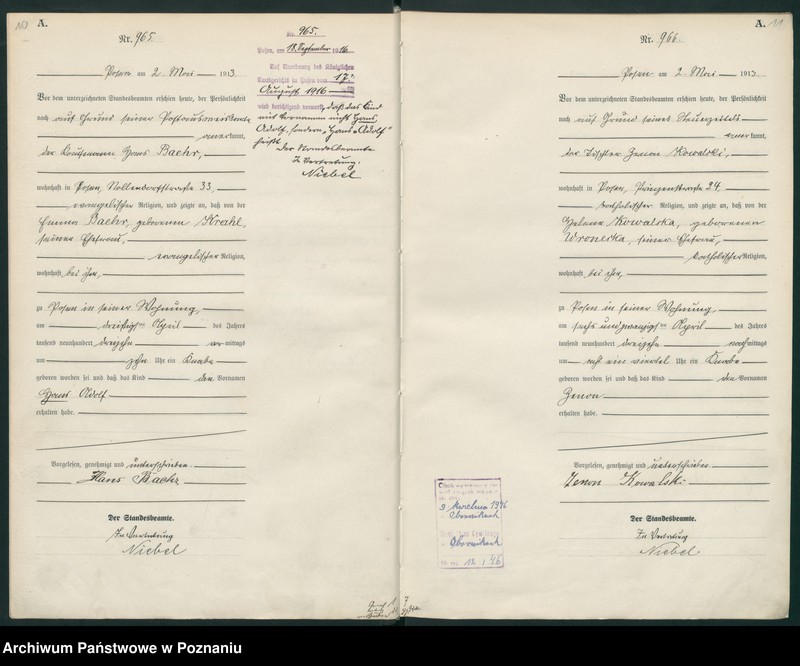 A.
Nr. 965
Posen am 2 Mai 1913
Vor dem unterzeichneten Standesbeamten erschien heute, der Persönlichkeit
nach auf Grund seiner
anerkannt,
der Kaufmann Hans Baehr,
wohnhaft in Posen, Nollendorfstraße 33,
evangelischer Religion, und zeigte an, daß von der
Emma Baehr, geborenen Krahl,
seiner Ehefrau,
evangelischer Religion,
wohnhaft bei ihm,
zu Posen in seiner Wohnung,
am dreißigsten April des Jahres
tausend neunhundert dreizehn vormittags
um zehn Uhr ein Knabe
geboren worden sei und daß das Kind den Vornamen
Hans Adolf
erhalten habe.
Vorgelesen, genehmigt und unterschrieben
Hans Baehr
Der Standesbeamte.
In Vertretung
Niebel
Nr. 965.
Posen, am 18. September 1916
Auf Anordnung des Königlichen
Amtsgerichts in Posen vom 17.
August 1916
wird berichtigend vermerkt, daß das Kind
mit Vornamen nicht Hans
Adolf, sondern "Hans-Adolf"
heißt.
Der Standesbeamte
In Vertretung.
Niebel
A.
11
Nr. 966
Posen am 2 Mai 1913
Vor dem unterzeichneten Standesbeamten erschien heute, der Persönlichkeit
nach auf Grund seines Steuerzettels
anerkannt,
der Tischler Zenon Kowalski,
wohnhaft in Posen, 24,
katholischer Religion, und zeigte an, daß von der
Helene Kowalska, geborenen
Wronecka, seiner Ehefrau,
katholischer Religion,
wohnhaft bei ihm,
zu Posen in seiner Wohnung,
am sechs und zwanzigsten April des Jahres
tausend neunhundert dreizehn nachmittags
um ein viertel Uhr ein Knabe
geboren worden sei und daß das Kind den Vornamen
Zenon
erhalten habe.
Vorgelesen, genehmigt und unterschrieben
Zenon Kowalski
Der Standesbeamte.
In Vertretung
Niebel
Archiwum Państwowe w Poznaniu